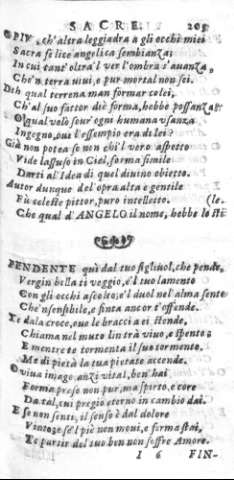 SACRE. 205
PIV, ch'altra leggiadra a gli occhi miei
Sacra felice angelica sembianza;
In cui tant'oltra'l ver l'ombra s'auanza,
Che'n terra viui, e pur mortal non sei.
Deh qual terrena man formar colei,
Ch'al suo fattor diè forma, hebbe possanza?
O qual volò sour'ogni humana vsanza
Ingegno, oue l'essempio era di lei?
Già non potea se non chi'l vero aspetto
Vide lassuso in Ciel, forma simile
Darti al'Idea di quel diuino obietto.
Autor dunque del'opra alta e gentile
Fù celeste pittor, puro intelletto. (le.
Che qual d'ANGELO il nome, hebbe lo sti
PENDENTE quì dal tuo figliuol, che pende,
Vergin bella ti veggio, e'l tuo lamento
Con gli occhi ascolto; e'l duol nel'alma sento
Che'nsensibile, e finta ancor t'offende.
Te dala croce, oue le braccia ei stende,
Chiama nel muto lin trà viuo, e spento;
E mentre te tormenta il suo tormento,
Me di pietà la tua pietate accende.
O viua imago anzi vital, ben'hai
Forma preso non pur, ma spirto, e core
Da tal, cui pregio eterno in cambio dai.
E se non senti, il senso è dal dolore
Vinto: e se'l piè non moui, e ferma stai,
Te partir del tuo ben non soffre Amore.
I 6 FIN-